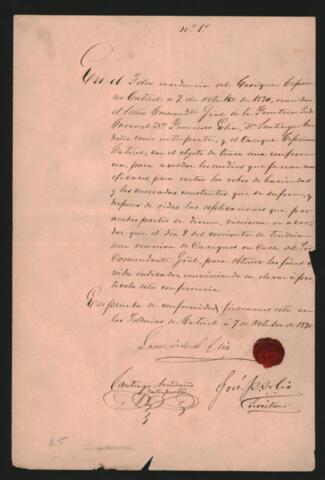 Nº 1º
En el Toldo residencia del Cacique Cipria
no Catriel a 7 de octubre de 1870, reunidos
el Señor Comandte Gral de la Frontera Sud
Coronel Dn Francisco Elia, Dn Santiago Aven
daño como interprete, y el Cacique Cipriano
Catriel, con el objeto de tener una conferen
cia, para acordar los medios que fueran mas
eficaces para evitar los robos de haciendas
y las invasiones constantes que se sufren, y
despues de oidas las esplicaciones que por
ambas partes se dieron, vinieron en acor
dar que el dia 9 del corriente se tendria
una reunion de Caciques en Casa del Sor
Comandante Gral para obtener los fines ar
riba indicados, conviniendo en elevar á pro
tocolo esta conferencia
En prueba de conformidad firmamos este en
las Tolderias de Catriel á 7 de Octubre de 1870
Elia
Santiago Avendaño
Interprete
José
Secretario
25